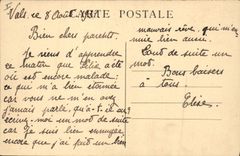 Vals, ce 8 Août
CARTE POSTALE
Bien chers parents,
Je viens d'apprendre
ce matin que Lélia a été
où est encore malade;
ce que m'a bien étonnée
car vous ne m'en avez
jamais parlé, qu'a-t-il eu?
Écrivez-moi un mot de suite
car je suis bien ennuyée
encore que j'ai fait un bien
mauvais rêve, qui m'en
nuie bien aussi.
Tout de suite un
mot.
Bons baisers
à tous.
Élise.